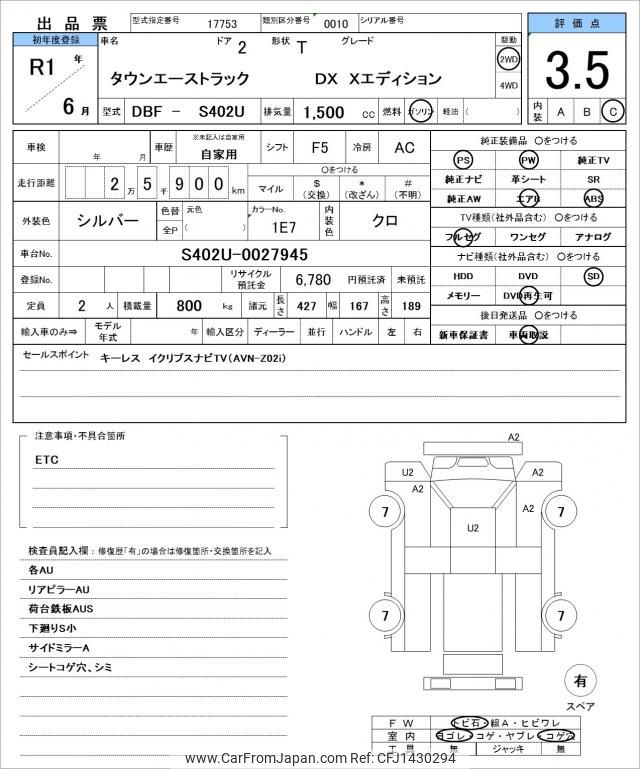 出品票 型式指定番号 17753 類別区分番号 0010 シリアル番号 評価点
初年度登録 車名 ドア 2 形状 T グレード 駆動
R1 年 タウンエーストラック DX Xエディション 2WD 3.5
4WD
6 月 型式 DBF － S402U 排気量 1,500 cc 燃料 ガソリン 軽油 ( ) 内装 A B C
車検 年 月 車歴 ※未記入は自家用 自家用 シフト F5 冷房 AC 純正装備品 〇をつける
走行距離 2 万 5 千 9 0 0 km 〇をつける PS PW 純正TV
マイル $ (交換) * (改ざん) # (不明) 純正ナビ 革シート SR
純正AW エアB ABS
外装色 シルバー 色替 元色 カラーNo. 内装色 クロ TV種類(社外品含む) 〇をつける
全P ( ) 1E7 フルセグ ワンセグ アナログ
車台No. S402U-0027945 ナビ種類(社外品含む) 〇をつける
登録No. リサイクル預託金 6,780 円預託済 未預託 HDD DVD SD
定員 2 人 積載量 800 kg 諸元 長さ 427 幅 167 高さ 189 メモリー DVD再生可
後日発送品 〇をつける
輸入車のみ⇒ モデル年式 年 輸入区分 ディーラー 並行 ハンドル 左 右 新車保証書 車両取説
セールスポイント キーレス イクリプスナビTV(AVN-Z02i)
注意事項・不具合箇所
ETC
検査員記入欄：修復歴「有」の場合は修復箇所・交換箇所を記入
各AU
リアピラーAU
荷台鉄板AUS
下廻りS小
サイドミラーA
シートコゲ穴、シミ
A2
U2 A2
A2 A2
7 7
U2
7 7
有
スペア
FW トビ石・線A・ヒビワレ
室内 ヨゴレ・コゲ・ヤブレ・コゲ穴
工具 無 ジャッキ 無
www.CarFromJapan.com Ref: CFJ1430294